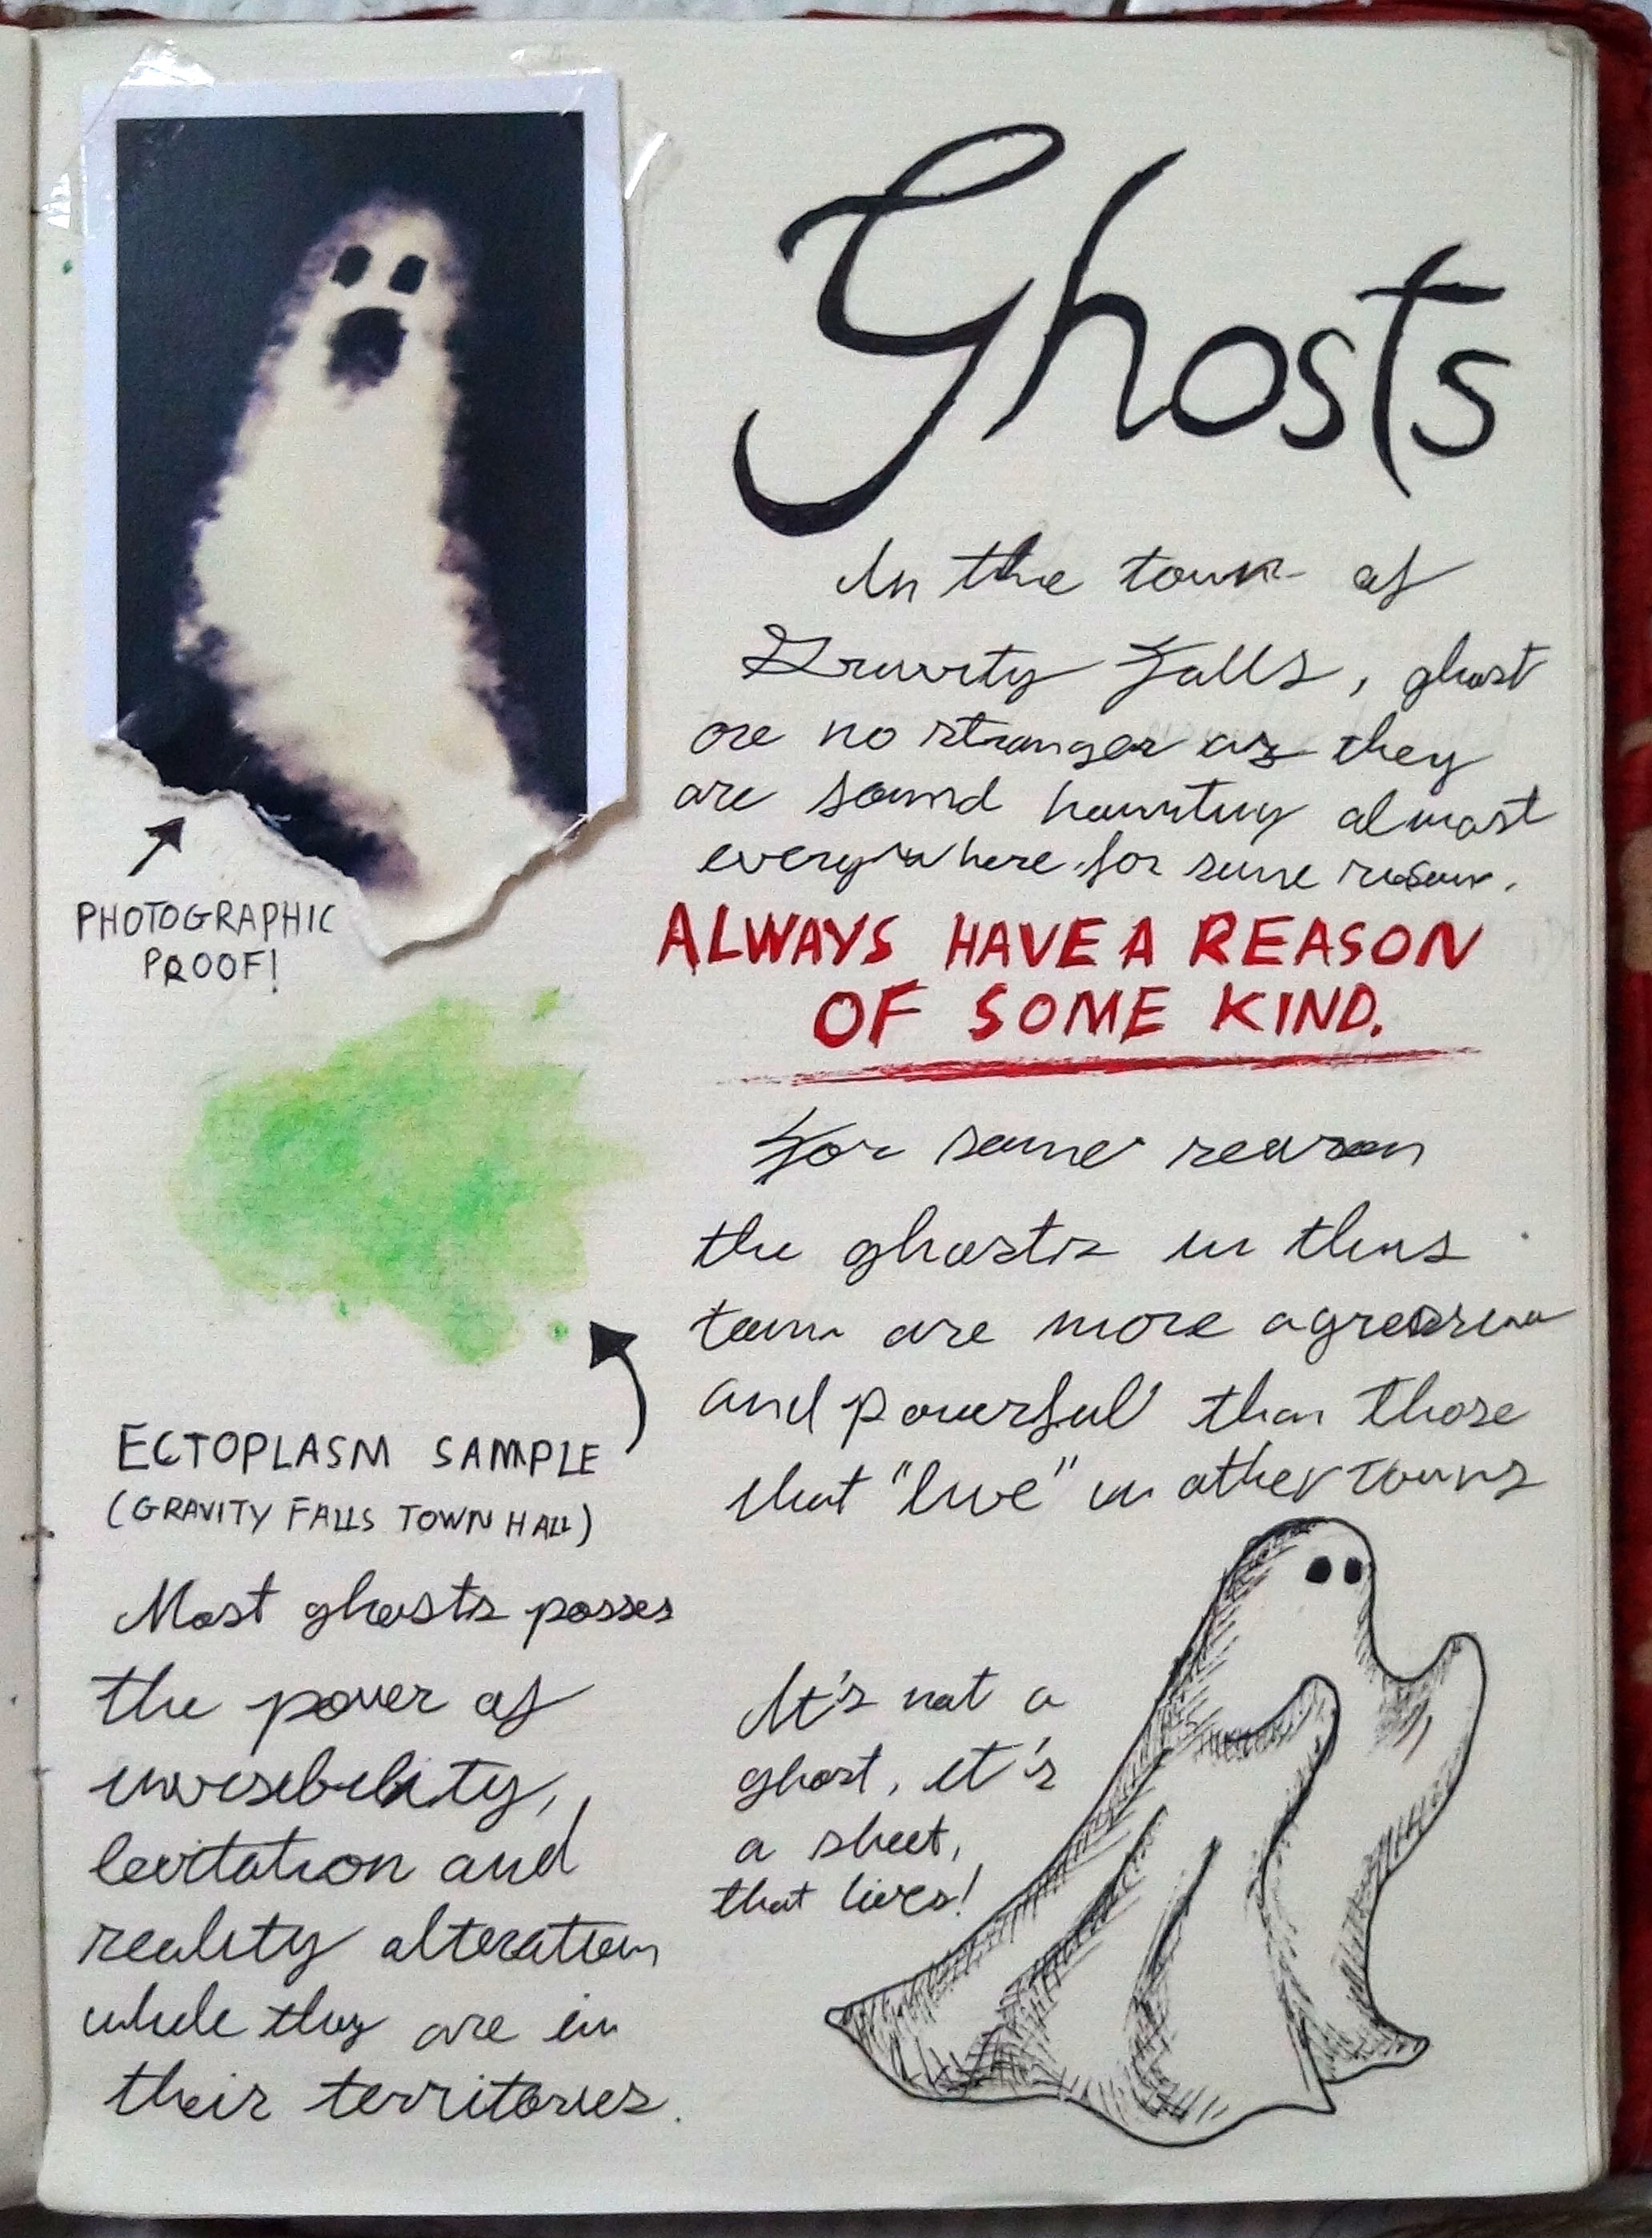 Ghosts
In the town of
Gravity Falls, ghost
are no stranger as they
are found haunting almost
everywhere for some reason.
ALWAYS HAVE A REASON
OF SOME KIND.
For some reason
the ghosts in this
town are more agressive
and powerful than those
that "live" in other towns
PHOTOGRAPHIC
PROOF!
ECTOPLASM SAMPLE
(GRAVITY FALLS TOWN HALL)
Most ghosts posses
the power of
invisibility,
levitation and
reality alteration
while they are in
their territories.
It's not a
ghost, it's
a sheet,
that lives!